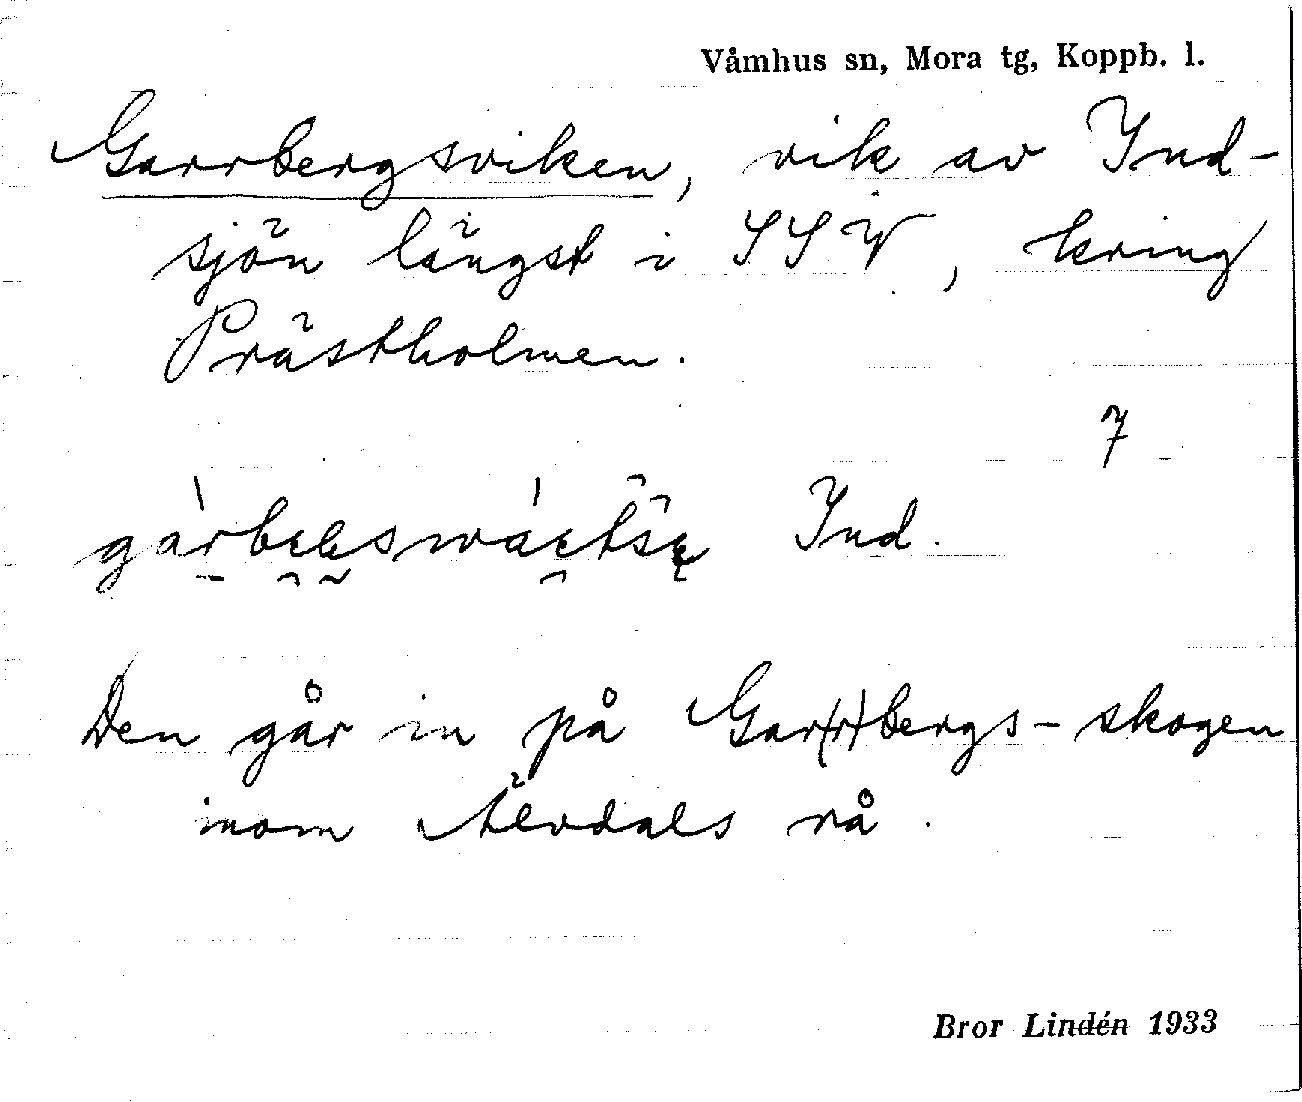 Våmhus sn, Mora tg, Koppb. l.
Garrbergsviken, vik av Ind-
sjön längst i SSV, kring
Prästholmen.
7
Ind.
Den går in på Gar(r)bergs-skogen
inom Älvdals rå.
Bror Lindén 1933